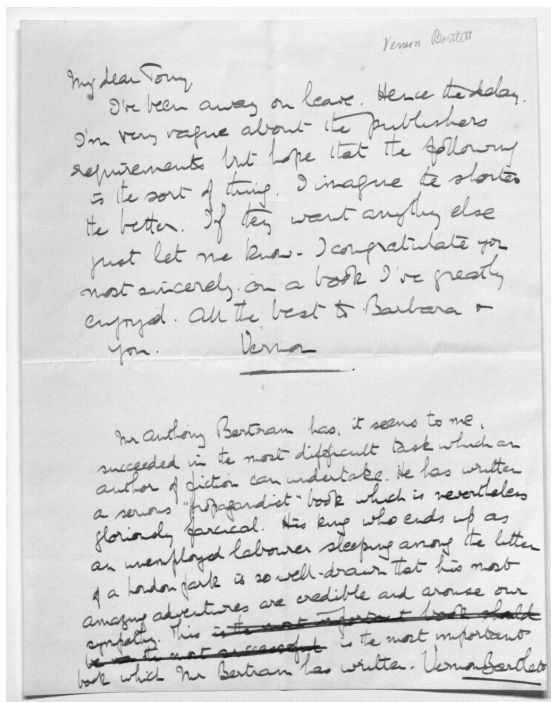 Vernon Bartlett
My dear Tony
I've been away on leave. Hence the delay.
I'm very vague about the publishers
requirements but hope that the following
is the sort of thing. I imagine the shorter
the better. If they want anything else
just let me know. I congratulate you
most sincerely on a book I've greatly
enjoyed. All the best to Barbara &
you. Vernon
Mr Anthony Bertram has, it seems to me,
succeeded in the most difficult task which an
author of fiction can undertake. He has written
a serious "propagandist" book which is nevertheless
gloriously farcical. His king who ends up as
an unemployed labourer sleeping among the litter
of a London park is so well-drawn that his most
amazing adventures are credible and arouse our
sympathy. This is the most important book should
be the most successful is the most important
book which Mr Bertram has written. Vernon Bartlett